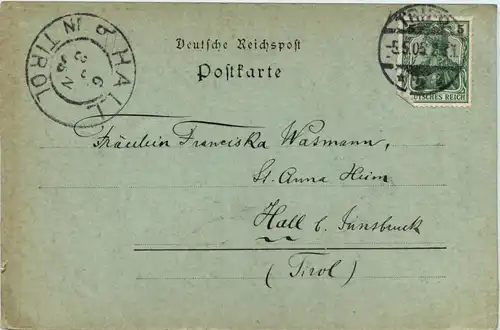 HALL IN TIROL
TRIER
-5.5.05
5 5
DEUTSCHES REICH
Deutsche Reichspost
Postkarte
Fräulein Franciska Wasmann,
St. Anna Heim
Hall b. Innsbruck
(Tirol)